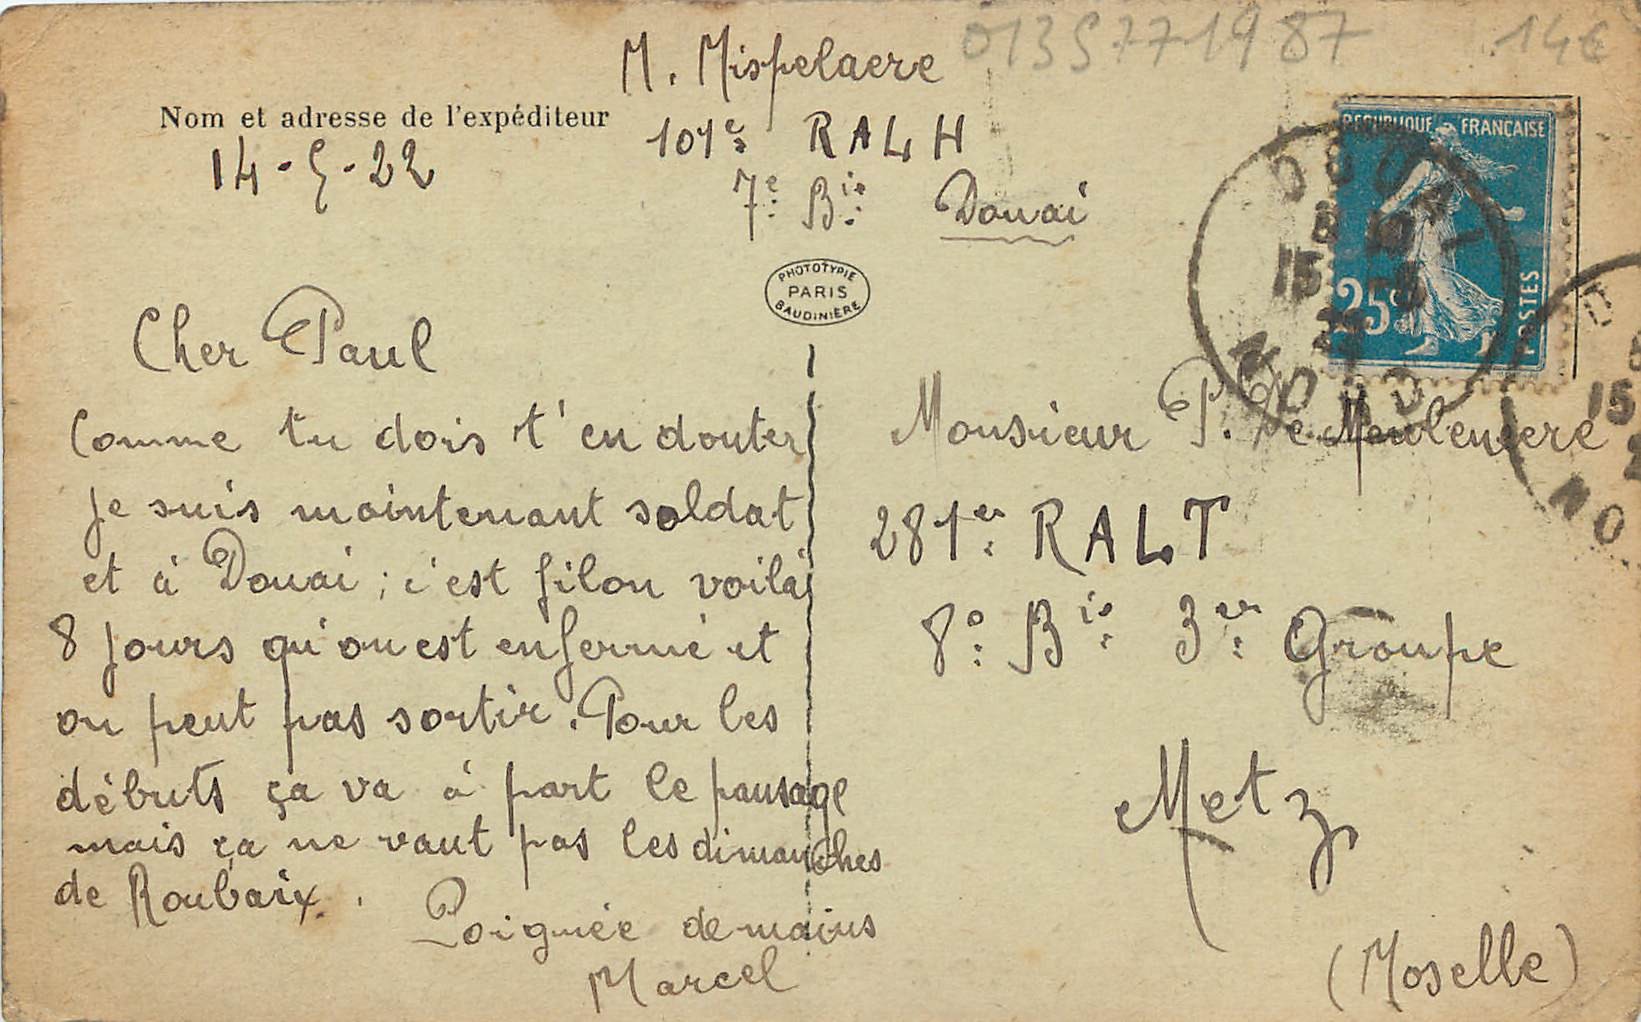 M. Mispelaere
0135771987 14€
Nom et adresse de l'expéditeur
101e RALH
14-5-22
7e Bie Douai
PHOTOTYPIE
PARIS
BAUDINIÈRE
REPUBLIQUE FRANÇAISE
25c
POSTES
DOUAI
15 -5
NORD
Cher Paul
Comme tu dois t'en douter
je suis maintenant soldat
et à Douai ; c'est filon voilà
8 jours qu'on est enfermé et
on peut pas sortir. Pour les
débuts ça va à part le pansage
mais ça ne vaut pas les dimanches
de Roubaix.
Poignée de mains
Marcel
Monsieur P. De Meulenaere
281er RALT
8e Bie 3er Groupe
Metz
(Moselle)
15
NO